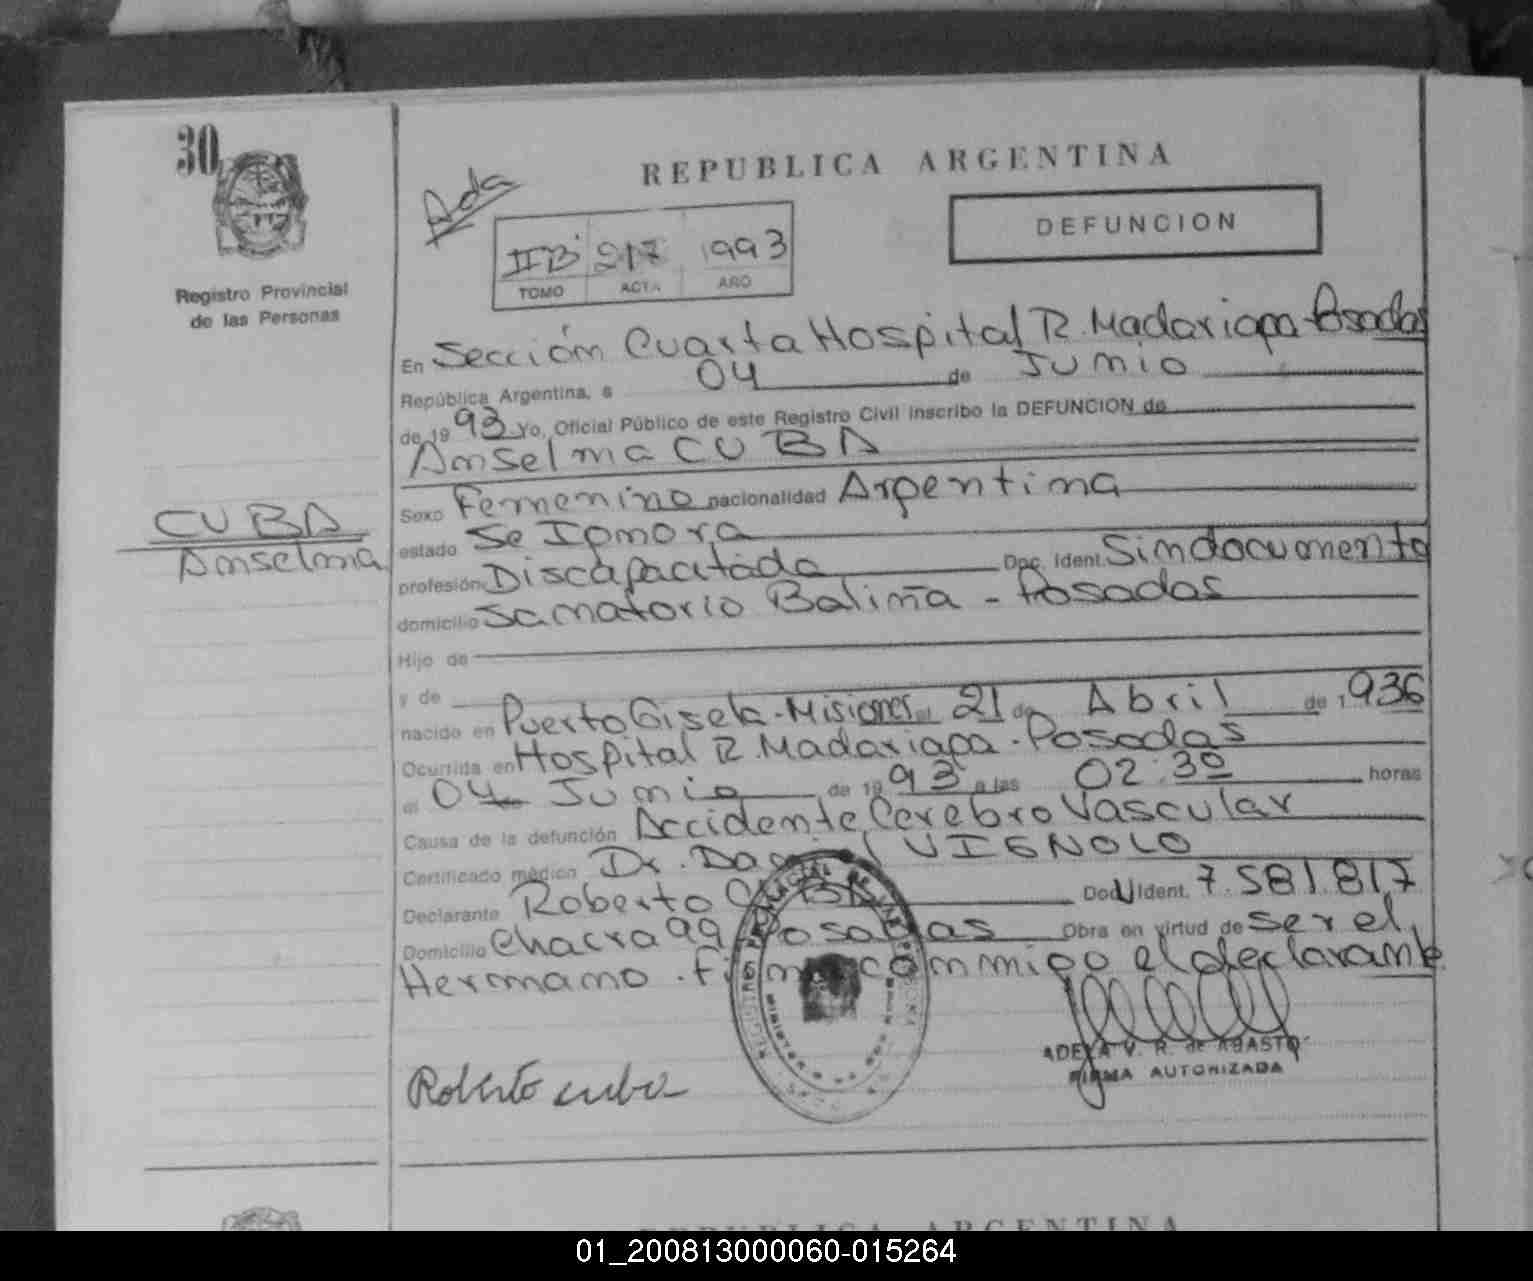 30
Registro Provincial
de las Personas
CUBA
Anselma
Ada
REPUBLICA ARGENTINA
DEFUNCION
IIB 217 1993
TOMO ACTA AÑO
En Sección Cuarta Hospital R. Madariaga-Posadas
República Argentina, a 04 de Junio
de 1993 Yo, Oficial Público de este Registro Civil inscribo la DEFUNCION de
Anselma CUBA
Sexo Femenino nacionalidad Argentina
estado Se Ignora
profesión Discapacitada Doc. Ident. Sin documento
domicilio Sanatorio Baliña - Posadas
Hijo de
y de
nacido en Puerto Gisela - Misiones el 21 de Abril de 1936
Ocurrida en Hospital R. Madariaga - Posadas
el 04 Junio de 1993 a las 02:30 horas
Causa de la defunción Accidente Cerebro Vascular
Certificado médico Dr. Daniel VIGNOLO
Declarante Roberto CUBA Doc. Ident. 7.581.817
Domicilio Chacra 99 Posadas Obra en virtud de ser el
Hermano. Firma conmigo el declarante
ADELA V. R. de ABASTO
FIRMA AUTORIZADA
Roberto cuba
REPUBLICA ARGENTINA
01_200813000060-015264